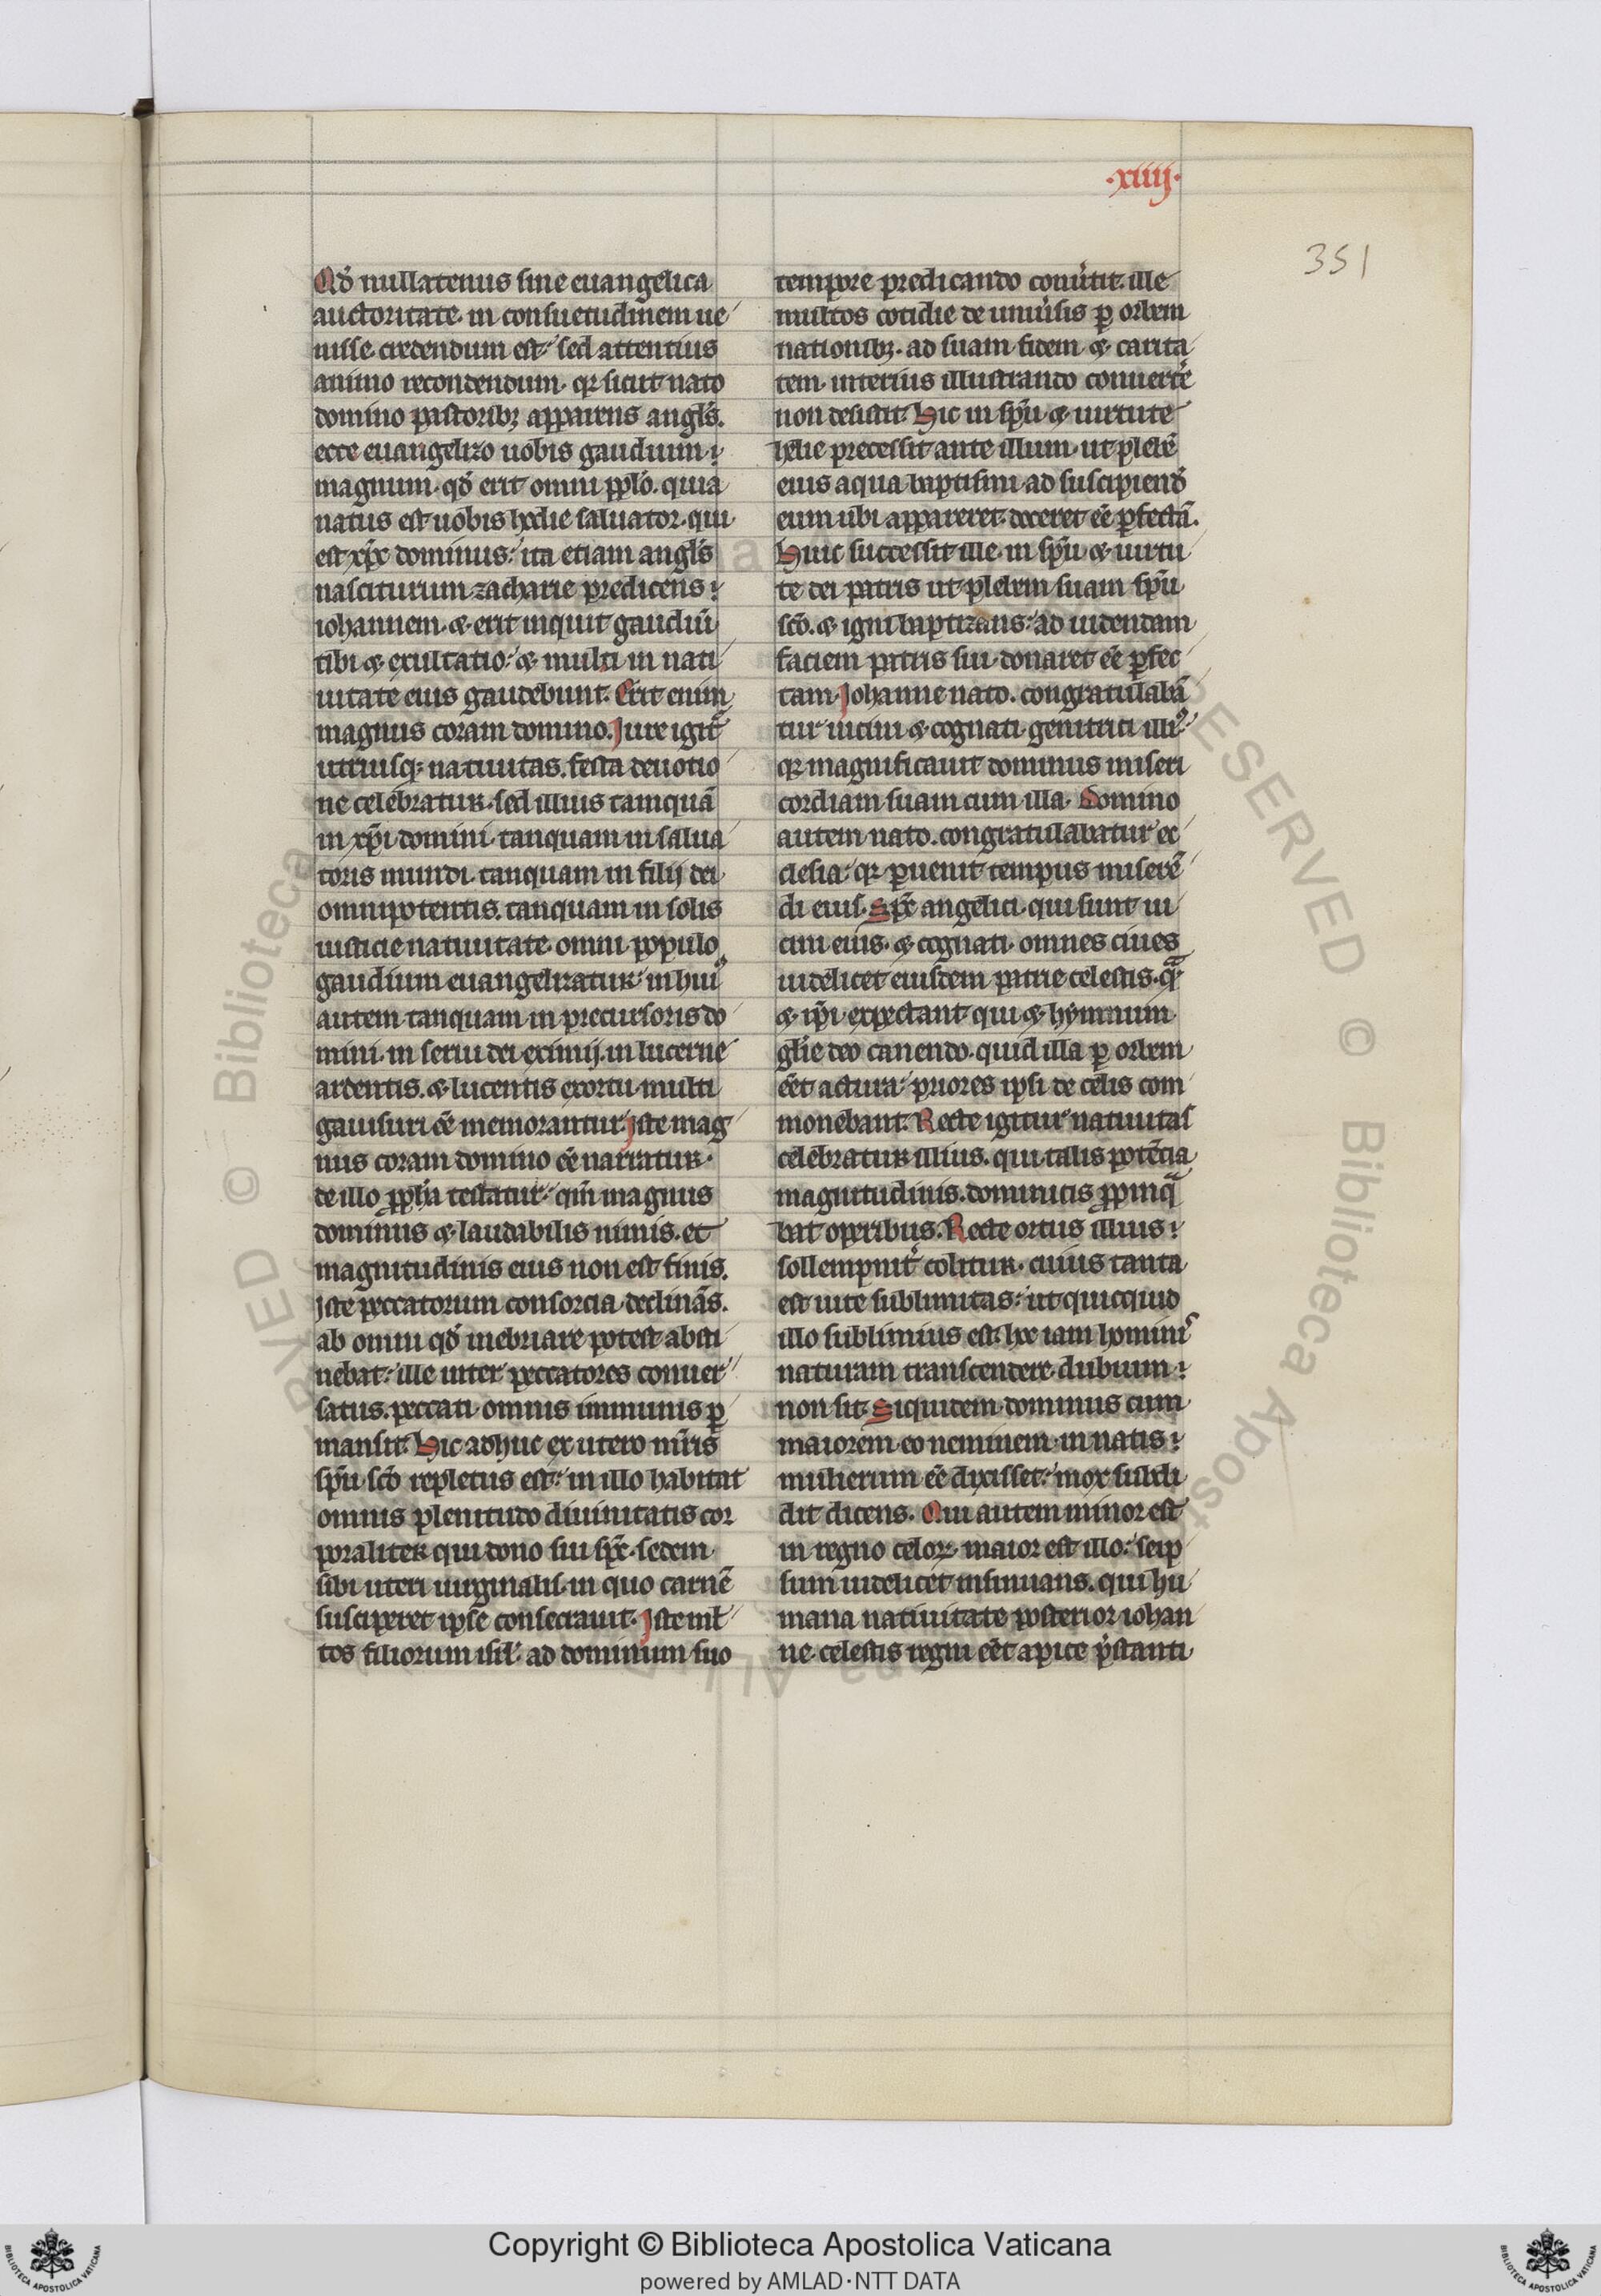 ·xiiij·
351
Qđ nullatenus sine euangelica
auctoritate in consuetudinem ue
nisse credendum est: sed attentius
animo recondendum· qr sicut nato
domino pastoribȝ apparens angl̄s.
ecce euangelizo uobis gaudium
magnum· qđ erit omni pplo. quia
natus est uobis hodie saluator· qui
est xp̄c dominus: ita etiam angl̄s
nasciturum zacharie predicens
iohannem· ⁊ erit inquit gaudiū
tibi ⁊ exultatio: ⁊ multi in nati
uitate eius gaudebunt. Erit enim
magnus coram domino. Jure igit᷑
utriusqȝ natiuitas. festa deuotio
ne celebratur· sed illius tamquā
in xp̄i domini· tanquam in salua
toris mundi· tanquam in filij dei
omnipotentis. tanquam in solis
iusticie natiuitate omni populo
gaudium euangelizatur: in huiꝰ
autem tanquam in precursoris do
mini· in serui dei eximij. in lucerne
ardentis. ⁊ lucentis exortu multi
gauisuri eē memorantur. Iste mag
nus coram domino eē narratur·
de illo ppha testatur: qm̄ magnus
dominus ⁊ laudabilis nimis. et
magnitudinis eius non est finis.
Iste peccatorum consorcia declinās.
ab omni qđ inebriare potest absti
nebat: ille inter peccatores conuer
satus. peccati omnis immunis ꝑ
mansit. Hic adhuc ex utero mr̄is
sp̄u sc̄o repletus est: in illo habitat
omnis plenitudo diuinitatis cor
poraliter qui dono sui sp̄c· sedem
sibi uteri uirginalis· in quo carnē
susciperet ipse consecrauit. Iste ml̄
tos filiorum isrl̄ ad dominum suo
tempore predicando conu᷑tit. ille
multos cotidie de uniu᷑sis ꝑ orbem
nationibȝ. ad suam fidem ⁊ carita
tem· interius illustrando conuertē
non desistit. Hic in sp̄u ⁊ uirtute
helie precessit ante illum· ut plebē
eius aqua baptismi ad suscipiend᷑
eum ubi appareret· doceret eē ꝑfectā.
Huic successit ille. in sp̄u ⁊ uirtu
te dei patris ut plebem suam sp̄u
sc̄o. ⁊ igni baptizans: ad uidendam
faciem patris sui· donaret eē ꝑfec
tam. Johanne nato. congratulabā
tur uicini ⁊ cognati· genitrici illiꝰ:
qr magnificauit dominus miseri
cordiam suam cum illa. Domino
autem nato. congratulabatur ec
clesia: qr ꝑuenit tempus miserē
di eius. Sp̄c angelici· qui sunt ui
cini eius. ⁊ cognati. omnes ciues
uidelicet eiusdem patrie celestis· qᷓ
⁊ ip̄i expectant· qui ⁊ hymnum
gl̄ie deo canendo. quid illa ꝑ orbem
eēt actura: priores ipsi de celis com
monebant. Recte igitur natiuitas
celebratur illius. qui talis potētia
magnitudinis. dominicis ꝓpinqᷓ
bat operibus. Recte ortus illius
sollempnit᷑ colitur· cuius tanta
est uite sublimitas: ut quicquid
illo sublimius est. hoc iam hominꝰ
naturam transcendere dubium
non sit. Siquidem dominus cum
maiorem eo neminem in natis
mulierum eē dixisset: mox subdi
dit dicens. Qui autem minor est
in regno celoꝝ maior est illo: seip
sum uidelicet insinuans. qui hu
mana natiuitate posterior iohan
ne· celestis regni eēt apice p᷑stanti
Copyright © Biblioteca Apostolica Vaticana
powered by AMLAD·NTT DATA